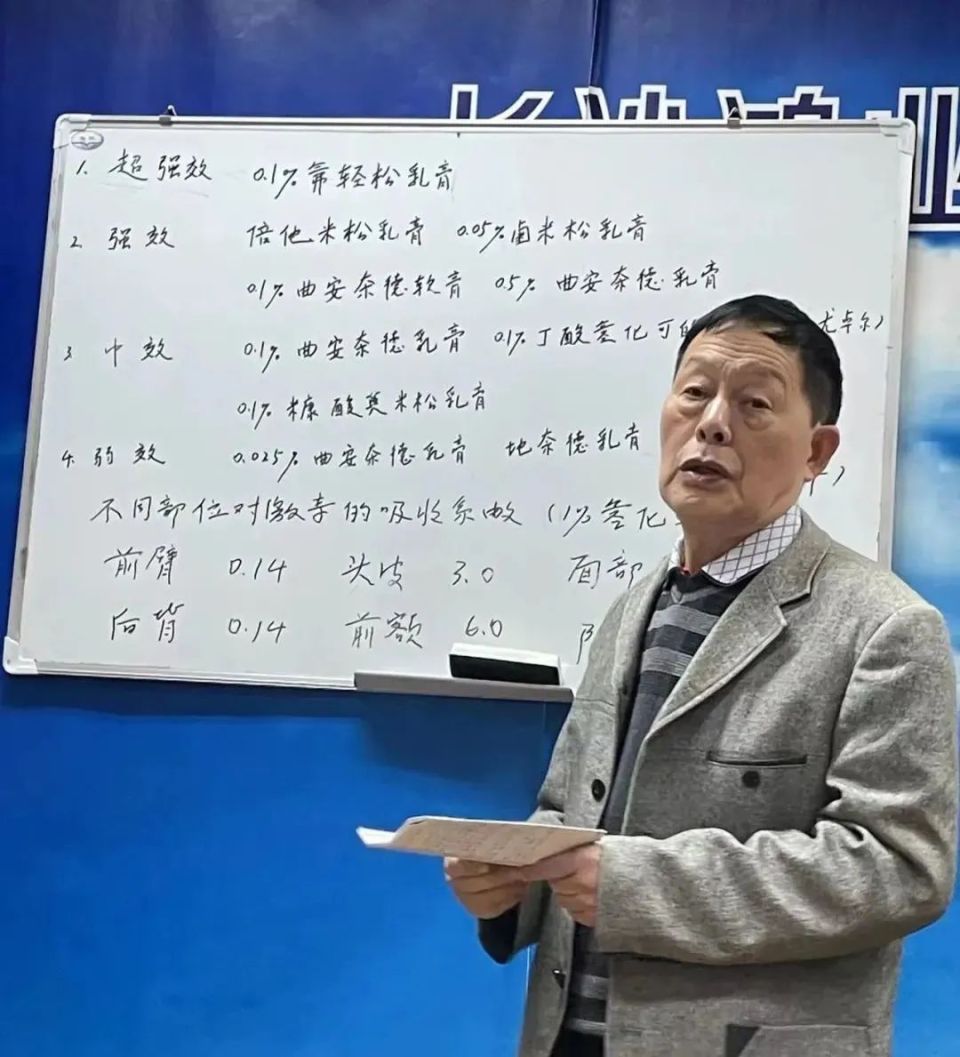 长沙鸿业
1. 超强效 0.1% 氟轻松乳膏
2. 强效 倍他米松乳膏 0.05% 卤米松乳膏
0.1% 曲安奈德软膏 0.5% 曲安奈德乳膏
3. 中效 0.1% 曲安奈德乳膏 0.1% 丁酸氢化可的 尤卓尔)
0.1% 糠酸莫米松乳膏
4. 弱效 0.025% 曲安奈德乳膏 地奈德乳膏
不同部位对激素的吸收系数 (1% 氢化
前臂 0.14 头皮 3.0 面部
后背 0.14 前额 6.0